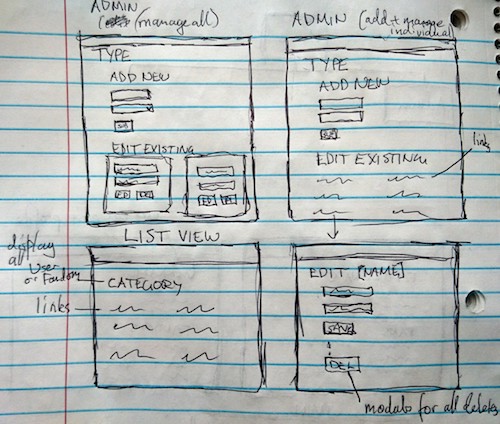 ADMIN
(manage all)
TYPE
ADD NEW
EDIT EXISTING
ADMIN (add + manage
individual)
TYPE
ADD NEW
EDIT EXISTING
links
LIST VIEW
display
all
User
or Fandom
CATEGORY
links
EDIT [NAME]
SAVE
DEL
modals for all deletes